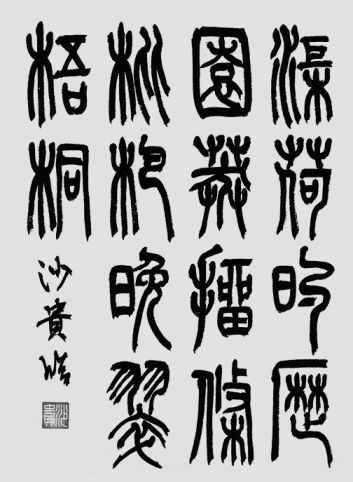 渠荷旳歷
園莽抽條
枇杷晚翠
梧桐
沙貴